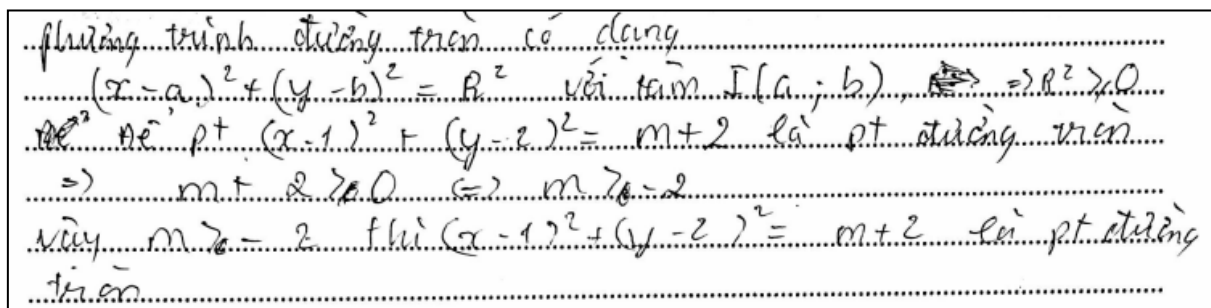 phương trình đường tròn có dạng
(x-a)² + (y-b)² = R² với tâm I(a; b), => R² ⩾ 0
Để pt (x-1)² + (y-2)² = m+2 là pt đường tròn
=> m + 2 ⩾ 0 <=> m ⩾ -2
vậy m ⩾ - 2 thì (x-1)² + (y-2)² = m+2 là pt đường
tròn